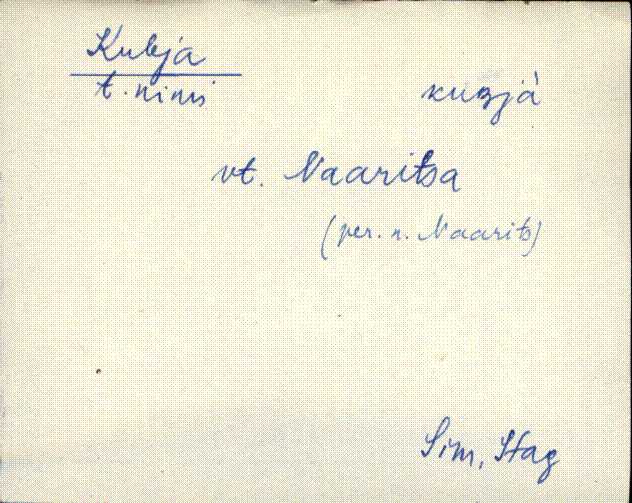 Kubja
t. nimi kuʙjà
vt. Naaritsa
(per. n. Naarits)
Sim, Stag